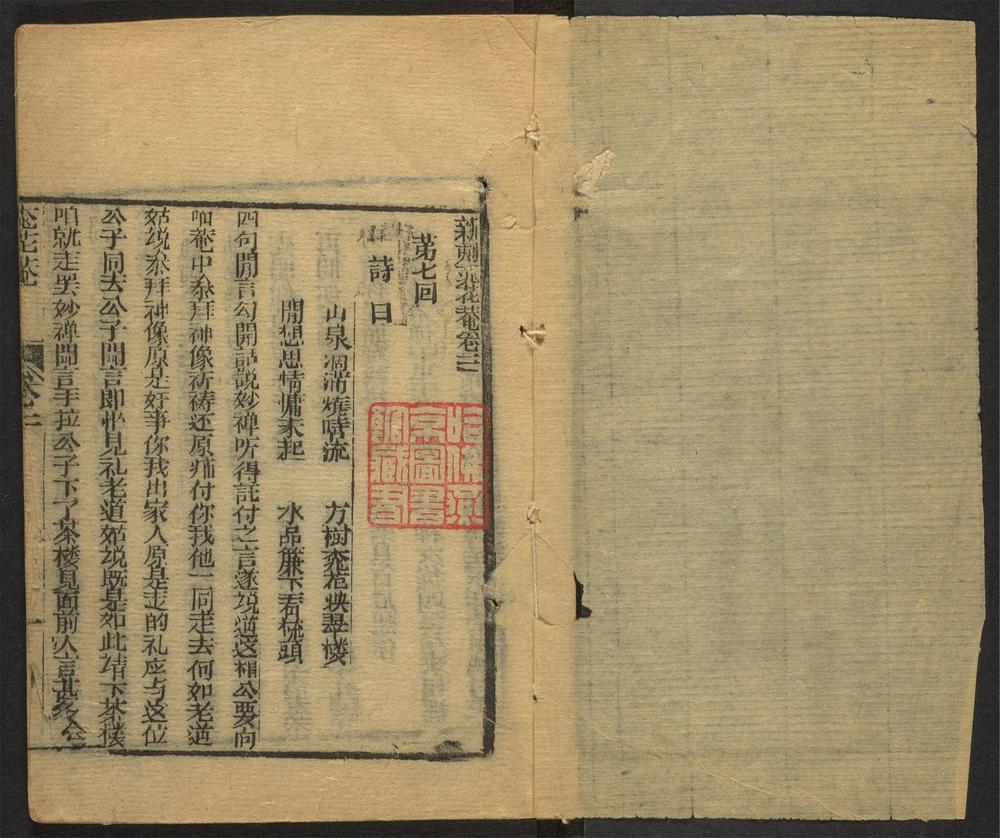 新刻桼花菴卷三
第七回
詩曰
山泉凋滞燒時流 方樹桼花映翠楼
閒想思情慵未起 水晶簾下看梳頭
四句閒言勾開話説妙禅听得託付之言遂説道这相公要向
咱菴中叅拜神像祈祷还原痛付你我他一同走去何如老道
姑説叅拜神像原是好事你我出家人原是走的礼应与这位
公子同去公子聞言即忙見礼老道姑説既是如此請下茶楼
咱就走罢妙禅聞言手拉公子下了茶楼見面前人言甚多会
桼花菴
哈佛燕京圖書館藏書